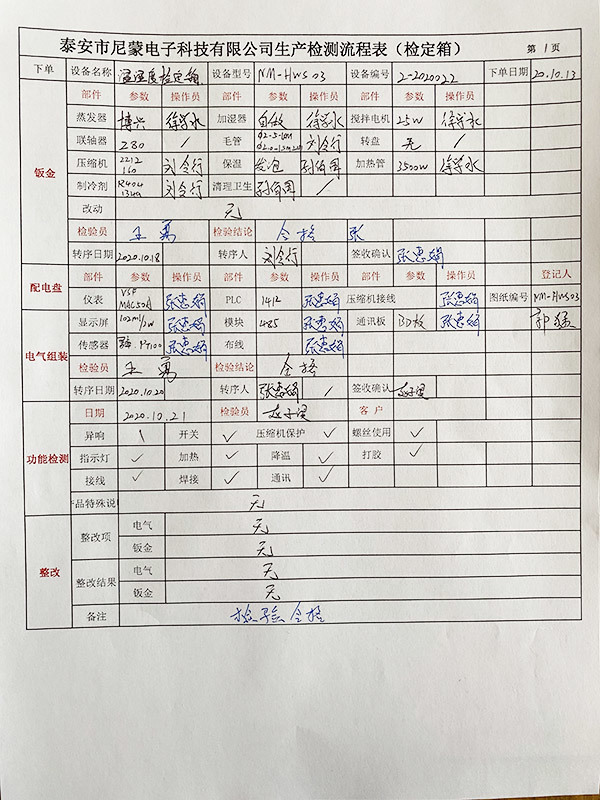 泰安市尼蒙电子科技有限公司生产检测流程表（检定箱） 第1页
下单 设备名称 温湿度检定箱 设备型号 NM-HWS03 设备编号 2-2020022 下单日期 20.10.13
部件 参数 操作员 部件 参数 操作员 部件 参数 操作员
蒸发器 博兴 徐学水 加湿器 自做 徐学水 搅拌电机 25W 徐学水
联轴器 Z80 / 毛管 刘令行 转盘 无 /
压缩机 2212 160 刘令行 保温 发泡 加热管 3500W 徐学水
制冷剂 R404 134a 刘令行 清理卫生 /
钣金
改动 无
检验员 王勇 检验结论 合格 张
转序日期 2020.10.18 转序人 刘令行 签收确认 张惠娟
配电盘 部件 参数 操作员 部件 参数 操作员 部件 参数 操作员 登记人
仪表 张惠娟 PLC 1412 张惠娟 压缩机接线 张惠娟 图纸编号 NM-HWS03
显示屏 张惠娟 模块 485 张惠娟 通讯板 张惠娟
电气组装
传感器 张惠娟 布线 张惠娟
检验员 王勇 检验结论 合格
转序日期 2020.10.20 转序人 张惠娟 / 签收确认
日期 2020.10.21 检验员 客户
异响 \ 开关 ✓ 压缩机保护 ✓ 螺丝使用 ✓
功能检测 指示灯 ✓ 加热 ✓ 降温 ✓ 打胶 ✓
接线 ✓ 焊接 ✓ 通讯 ✓
产品特殊说 无
整改项 电气 无
钣金 无
整改
整改结果 电气 无
钣金 无
备注 检验合格